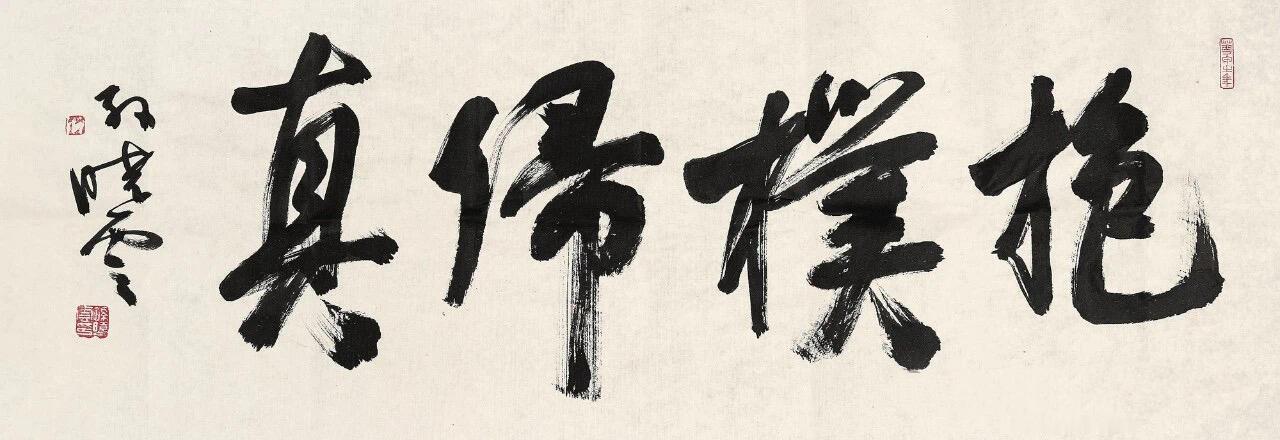 抱樸歸真
孙晓云